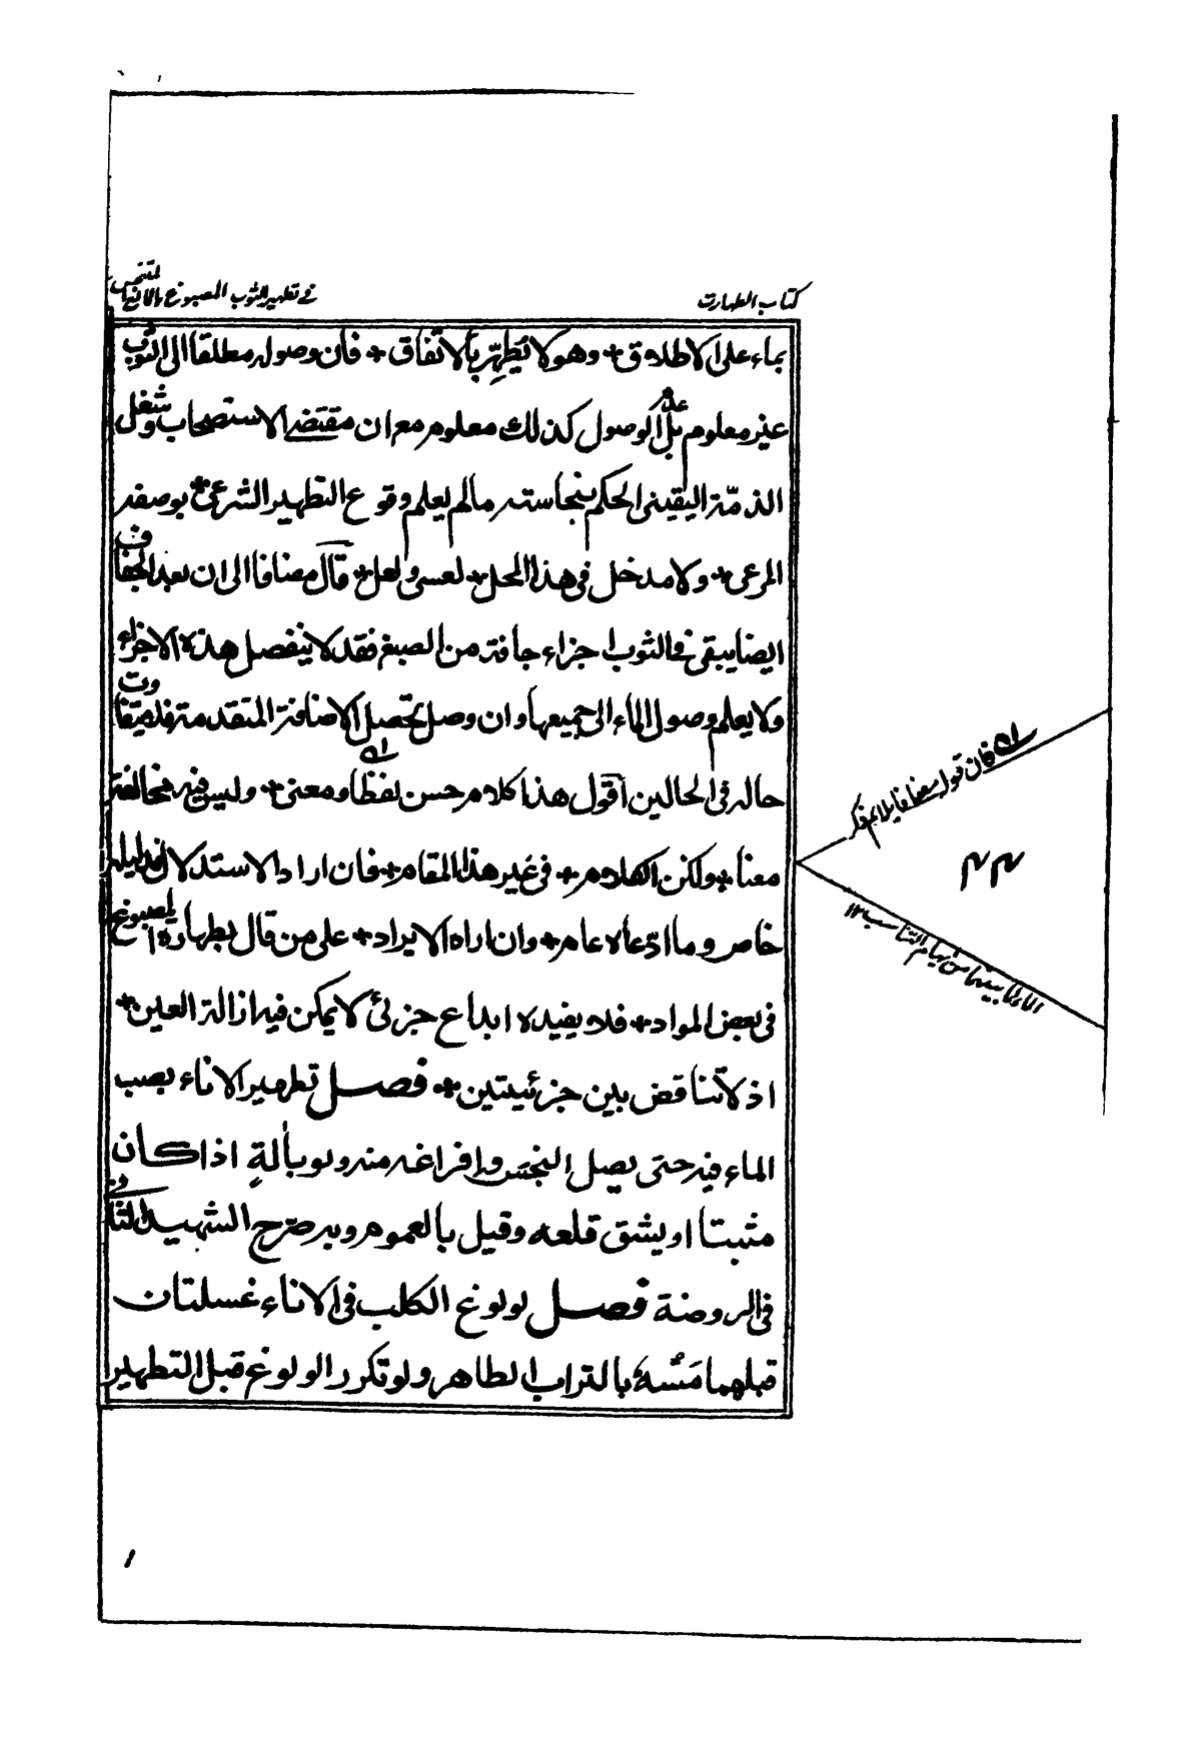 كتاب الطهارت
في تطهير الثوب المصبوغ بالمائع المتنجس
بماء على الاطلاق + وهو لا يُطَهِّر بألاتفاق + فان وصوله مطلقا الى الثوب
غير معلوم بل عدم الوصول كذلك معلوم مع ان مقتضى الاستصحاب وشغل
الذمّة اليقينى الحكم بنجاسته مالم يعلم وقوع التطهير الشرعى + بوصفه
المرعى + ولا مدخل فى هذا المحل + لعسى ولعل + قال مضافا الى ان بعد الجفاف
ايضا يبقى فى الثوب اجزاء جافة من الصبغ فقد لا ينفصل هذه الاجزاء
ولا يعلم وصول الماء الى جميعها وان وصل تحصل الاضافة المتقدمة فلا يتفاوت
حاله فى الحالين اقول هذا كلام حسن لفظا ومعنى + وليس فيه مخالفة
معنا + ولكن الكلام + فى غير هذا المقام + فان اراد الاستدلال فدليله
خاص وما ادّعاه عام + وان اراد الايراد + على من قال بطهارة المصبوغ
فى بعض المواد + فلا يفيده ابداع جزئى لا يمكن فيه ازالة العين +
اذ لا تناقض بين جزئيتين + فصل تطهير الاناء بصب
الماء فيه حتى يصل النجس وافراغه منه ولو بألةٍ اذا كان
مثبتا او يشق قلعه وقيل بالعموم وبه صرّح الشهيد الثانى
فى الروضة فصل لولوغ الكلب فى الاناء غسلتان
قبلهما مَسُّهُ بالتراب الطاهر ولو تكرر الولوغ قبل التطهير
فان قوله مضافا يلائم ذكر
الاضافة بينهما من ايهام التناسب ١٢
٤٤